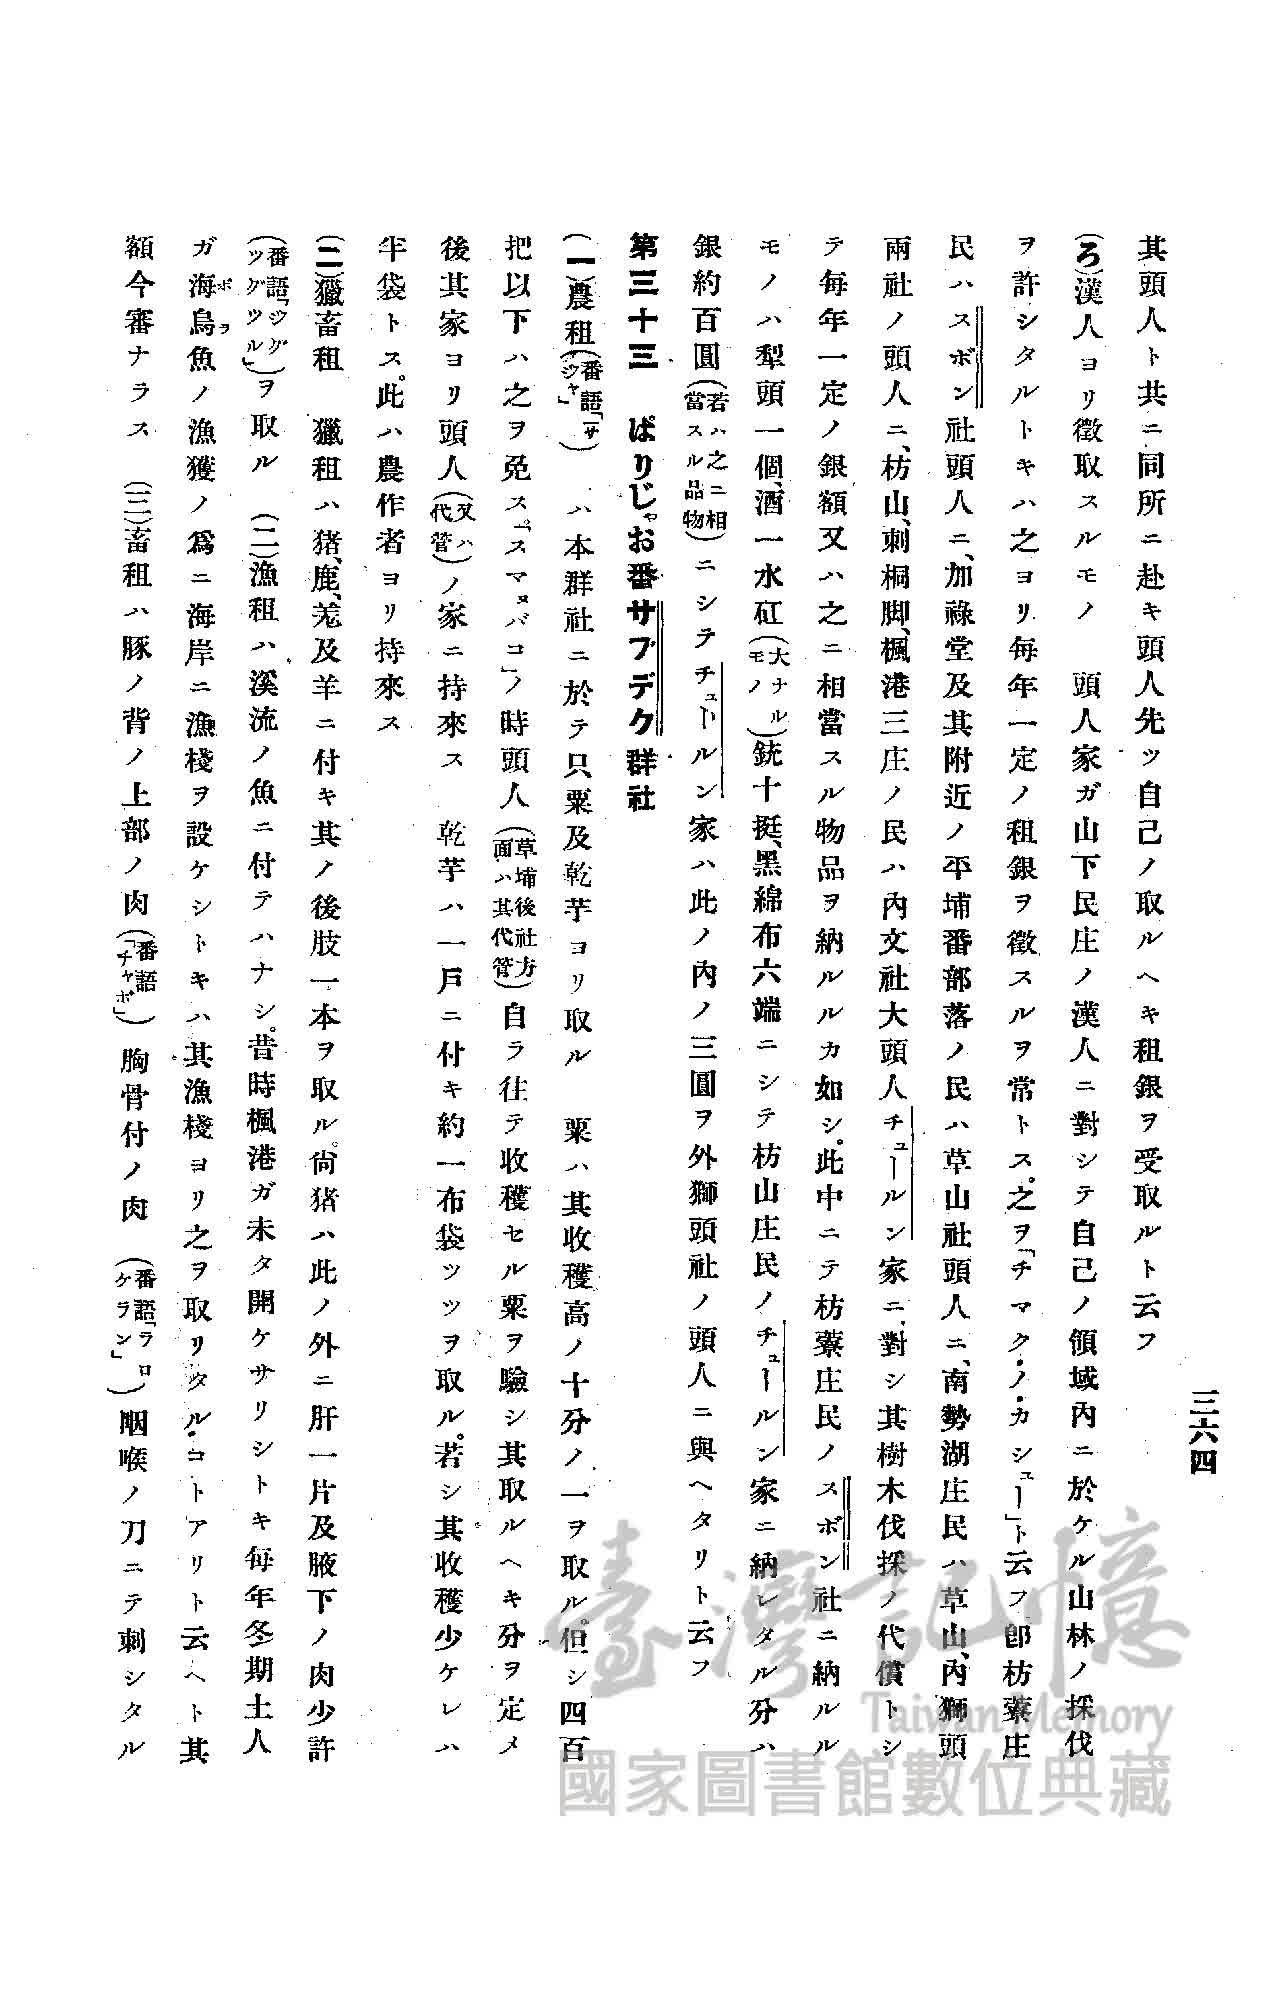 三六四
其頭人ト共ニ同所ニ赴キ頭人先ツ自己ノ取ルヘキ租銀ヲ受取ルト云フ
(ろ)漢人ヨリ徵取スルモノ　頭人家ガ山下民庄ノ漢人ニ對シテ自己ノ領域內ニ於ケル山林ノ採伐
ヲ許シタルトキハ之ヨリ每年一定ノ租銀ヲ徵スルヲ常トス。之ヲ「チマク・ノ・カシュー」ト云フ卽枋藔庄
民ハスボン社頭人ニ、加祿堂及其附近ノ平埔番部落ノ民ハ草山社頭人ニ、南勢湖庄民ハ草山、內獅頭
兩社ノ頭人ニ、枋山、刺桐脚、楓港三庄ノ民ハ內文社大頭人チュールン家ニ、對シ其樹木伐採ノ代償トシ
テ每年一定ノ銀額又ハ之ニ相當スル物品ヲ納ルルカ如シ。此中ニテ枋藔庄民ノスボン社ニ納ルル
モノハ犁頭一個、酒一水缸(大ナルモノ)銃十挺、黑綿布六端ニシテ枋山庄民ノチュールン家ニ納レタル分ハ
銀約百圓(若ハ之ニ相當スル品物)ニシテチュールン家ハ此ノ內ノ三圓ヲ外獅頭社ノ頭人ニ與ヘタリト云フ
第三十三　ぱりじゃお番サブデク群社
(一)農租(番語「サツヤ」)　ハ本群社ニ於テ只粟及乾芋ヨリ取ル　粟ハ其收穫高ノ十分ノ一ヲ取ル。但シ四百
把以下ハ之ヲ免ス。「スマヌバコ」ノ時頭人(草埔後社方面ハ其代管)自ラ往テ收穫セル粟ヲ驗シ其取ルヘキ分ヲ定メ
後其家ヨリ頭人(又ハ代管)ノ家ニ持來ス　乾芋ハ一戶ニ付キ約一布袋ツツヲ取ル。若シ其收穫少ケレハ
半袋トス。此ハ農作者ヨリ持來ス
(二)獵畜租　獵租ハ猪、鹿、羌及羊ニ付キ其ノ後肢一本ヲ取ル。尙猪ハ此ノ外ニ肝一片及腋下ノ肉少許
(番語「ジグツグツル」)ヲ取ル　(二)漁租ハ溪流ノ魚ニ付テハナシ。昔時楓港ガ未タ開ケサリシトキ每年冬期土人
ガ海烏魚ノ漁獲ノ爲ニ海岸ニ漁棧ヲ設ケシトキハ其漁棧ヨリ之ヲ取リタル・コトアリト云ヘト其
額今審ナラス　(三)畜租ハ豚ノ背ノ上部ノ肉(番語「チャボ」)胸骨付ノ肉　(番語「ラロケラン」)咽喉ノ刀ニテ刺シタル
臺灣記憶
Taiwan Memory
國家圖書館數位典藏